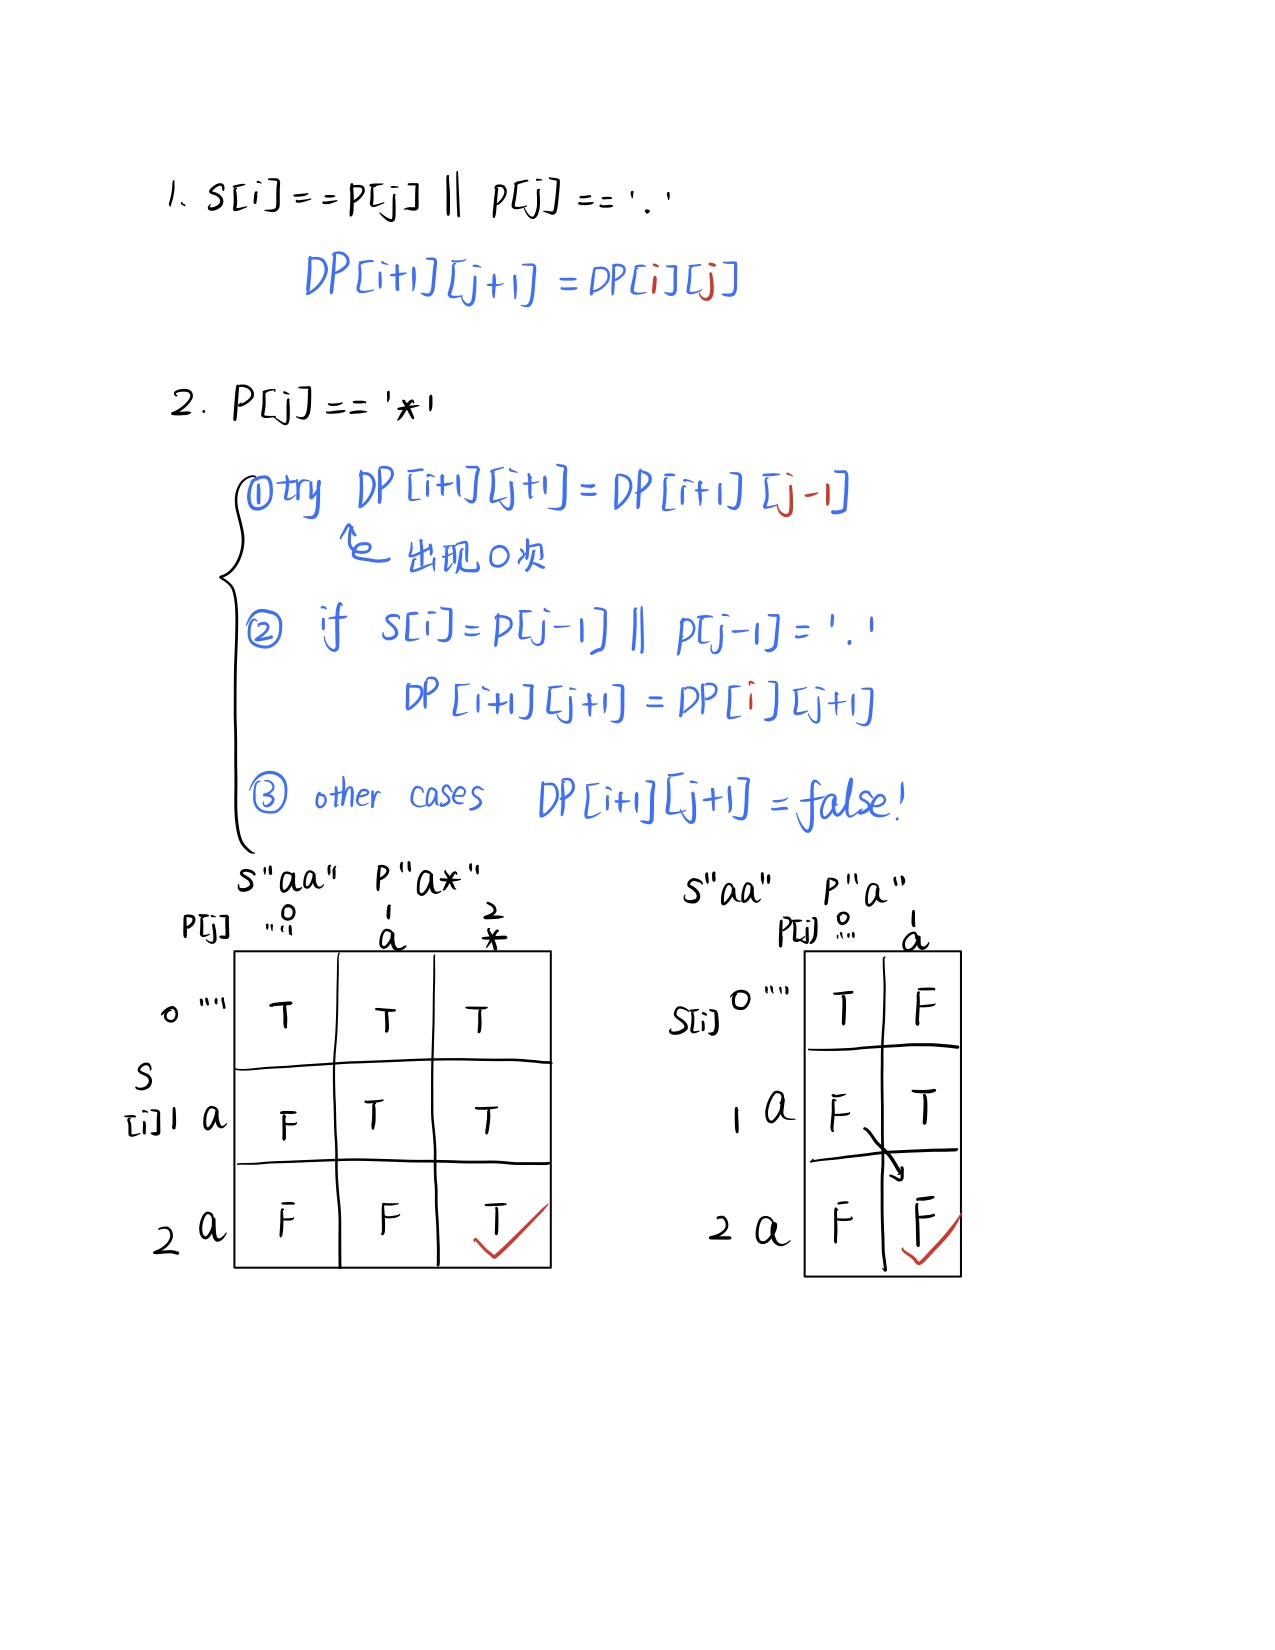 1. S[i]==P[j] || P[j]=='.'
DP[i+1][j+1] = DP[i][j]
2. P[j]=='*'
① try DP[i+1][j+1] = DP[i+1][j-1]
出现0次
② if S[i]=P[j-1] || P[j-1]='.'
DP[i+1][j+1] = DP[i][j+1]
③ other cases DP[i+1][j+1] = false!
S"aa" P"a*"
P[j] 0 1 2
"" a *
0 "" T T T
S[i] 1 a F T T
2 a F F T
S"aa" P"a"
P[j] 0 1
"" a
S[i] 0 "" T F
1 a F T
2 a F F